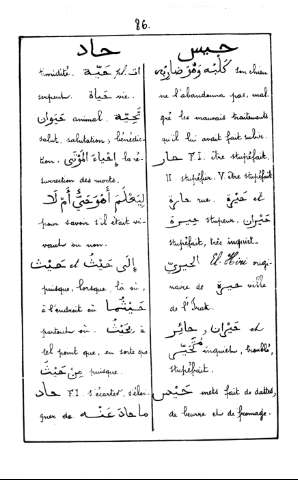 86.
حاد
timidité. حَيّة pl. ات
serpent. حَيَاة vie.
حَيَوان animal. تَحِيّة
salut, salutation, bénédic-
tion. إِحْيَاءُ المَوْتَى la ré-
surrection des morts.
لِيَعْلَمَ أَهُوَ حَيٌّ أَمْ لَا
pour savoir s'il était vi-
vant ou non.
حَيْثُ et إِلَى حَيْثُ
puisque, lorsque, là où,
à l'endroit où حَيْثُمَا
partout où. بِحَيْثُ à
tel point que, en sorte que
مِنْ حَيْثُ puisque.
حاد F.I s'écarter, s'éloi-
gner de مَا حَادَ عَنْهُ
حيس
كَلْبُهُ وَهُوَ ضَارِبُهُ son chien
ne l'abandonna pas, mal-
gré les mauvais traitements
qu'il lui avait fait subir.
حار F.I. être stupéfait.
II. stupéfier. V être stupéfait
حَارَة rue. حَيْرَة et
حَيْرَان stupeur.
stupéfait, très inquiet.
الحِيرَة El Hira origi-
naire de حيرة ville
de l'Irak.
حَيْرَان, حَائِر et
مُتَحَيِّر inquiet, troublé,
stupéfait.
حَيْس mets fait de dattes,
de beurre et de fromage.